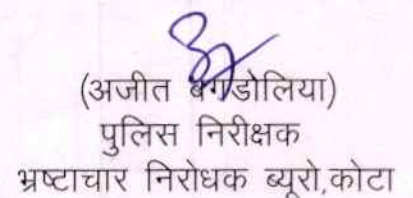 (अजीत बगडोलिया)
पुलिस निरीक्षक
भ्रष्टाचार निरोधक ब्यूरो,कोटा